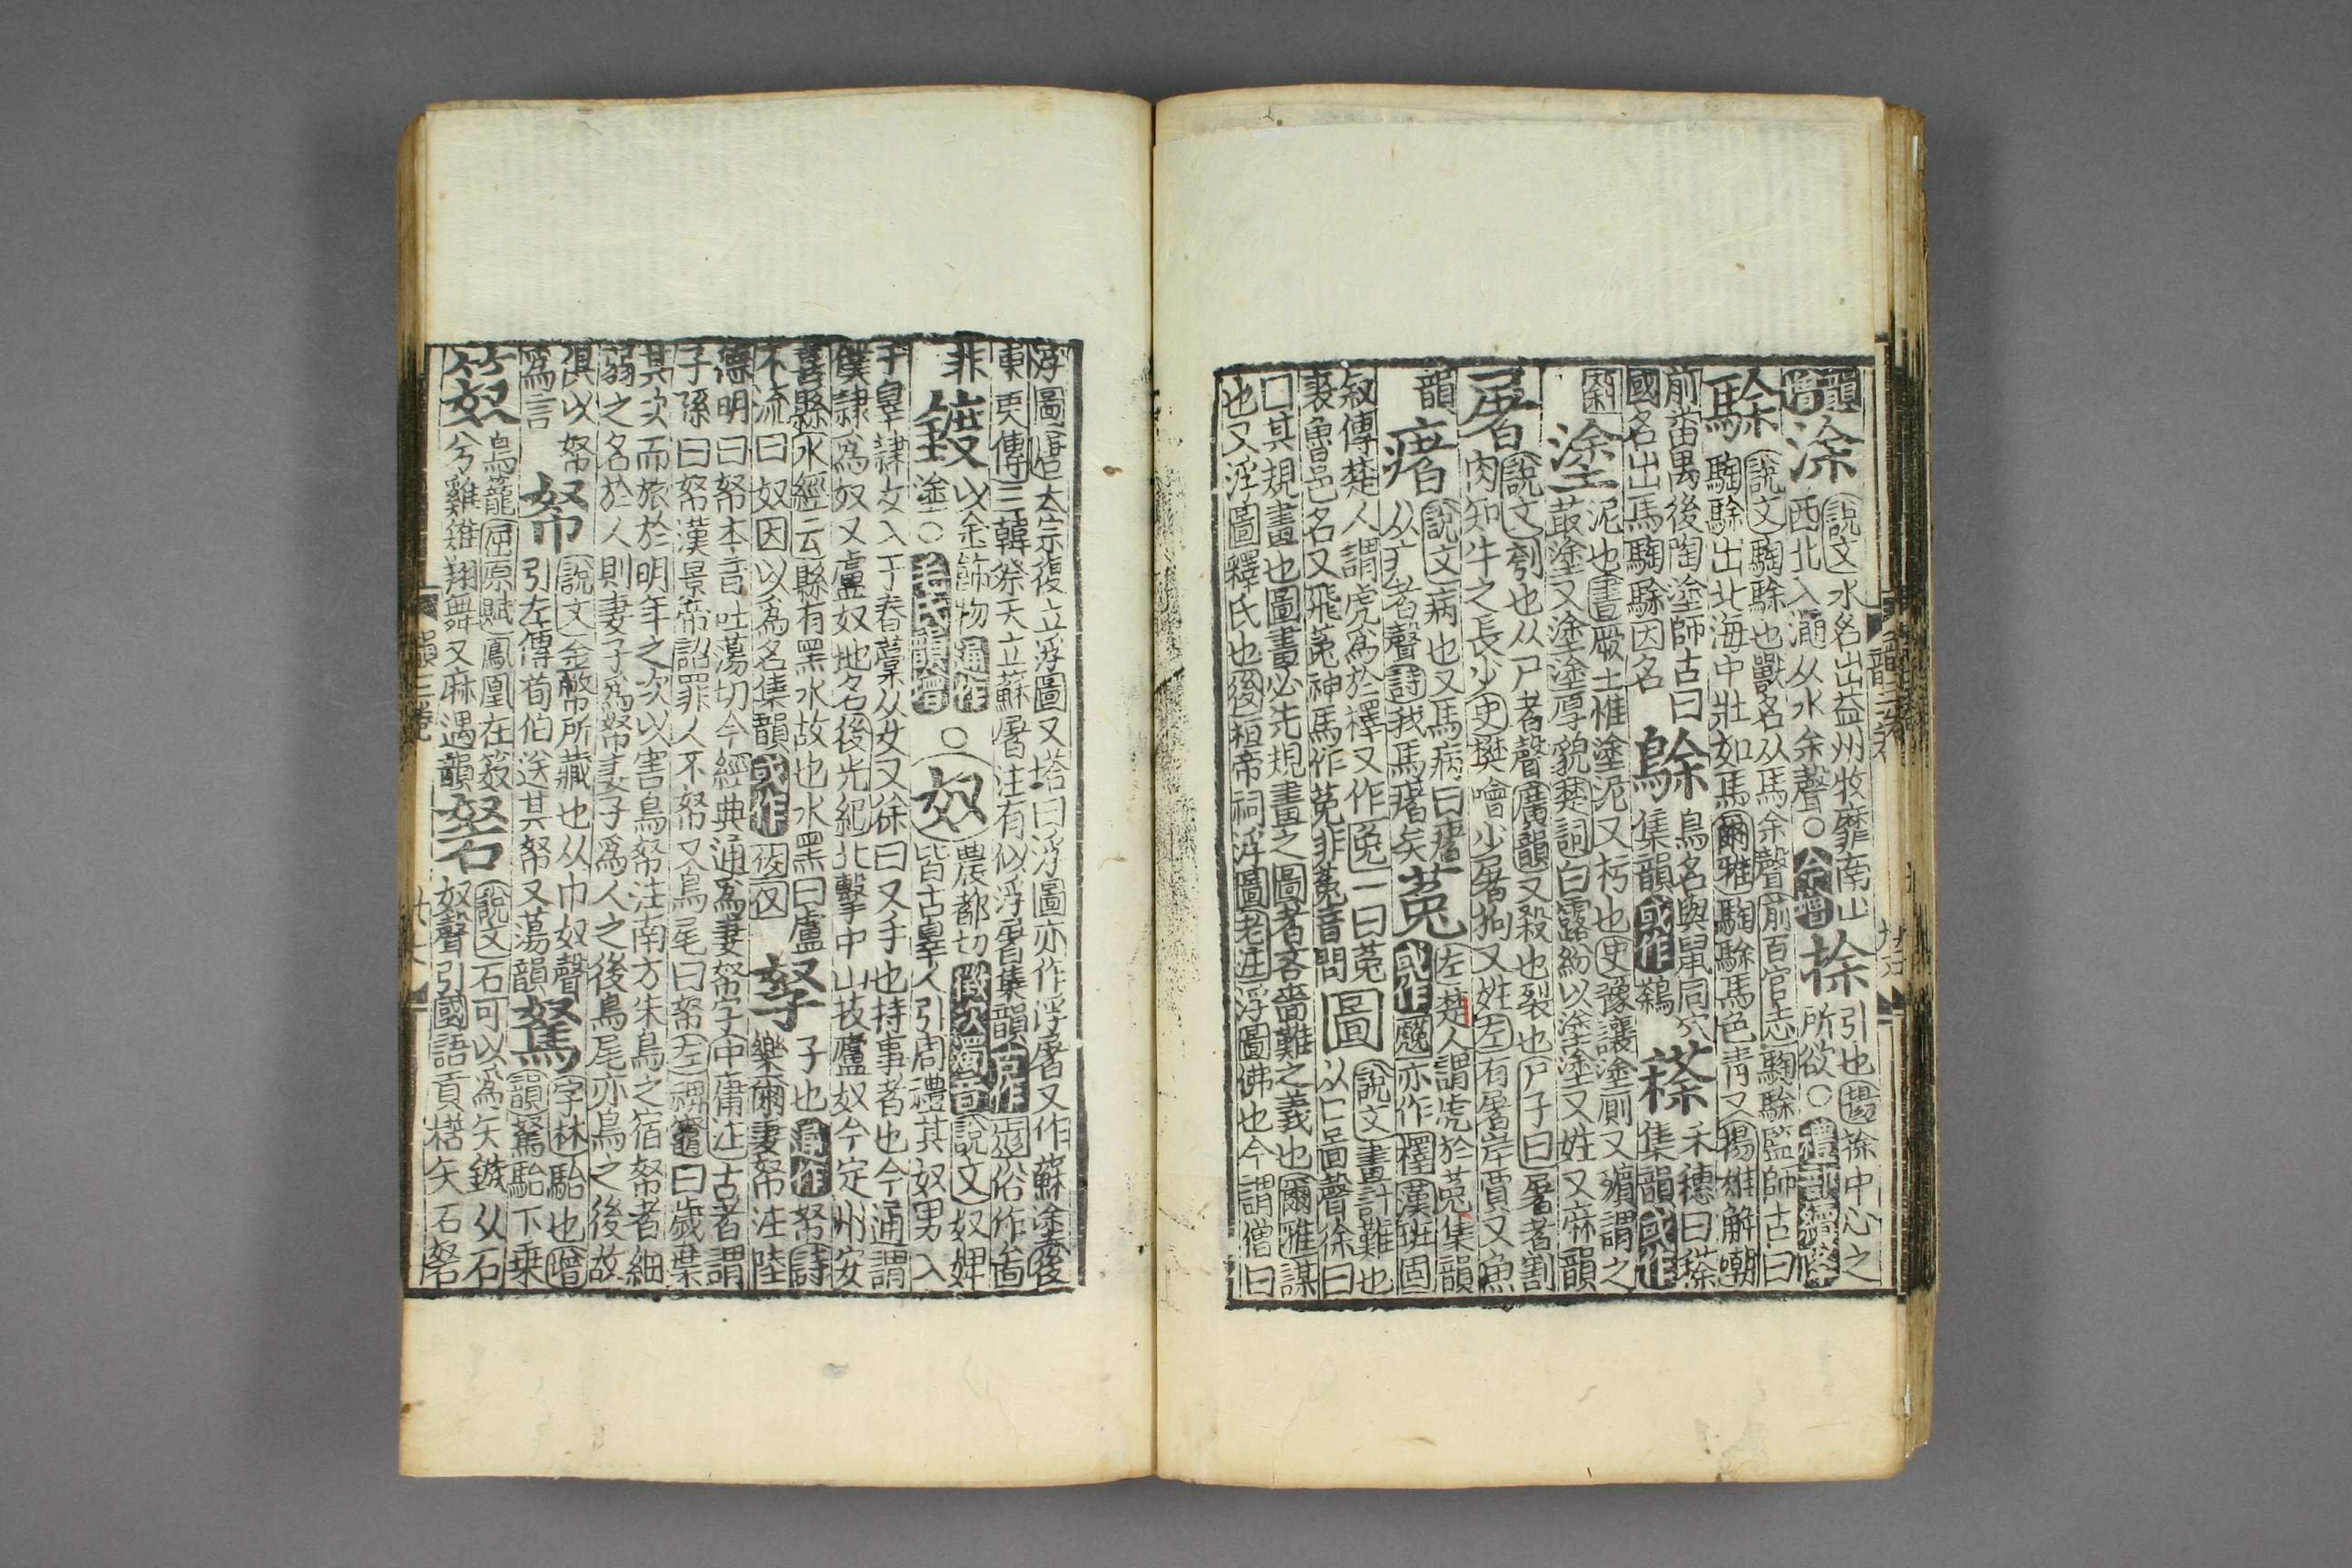 韻增涂說文水名出益州牧靡南山西北入澠从水余聲○公增捈引也揚捈中心之所欲○禮部續降
駼說文騊駼也獸名从馬余聲前百官志騊駼監師古曰
騊駼出北海中壯如馬爾雅騊駼馬色青又揚雄解嘲
前番禺後陶塗師古曰國名出馬騊駼因名鵌鳥名與鼠同穴集韻或作鷋䅷禾穗曰䅷集韻或作
塗泥也書厥土惟塗泥又杇也史豫讓塗廁又殯謂之
菆塗又塗塗厚貌楚詞白露紛以塗塗又姓又麻韻
屠說文刳也从尸者聲廣韻又殺也裂也尸子曰屠者割
肉知牛之長少史樊噲少屠狗又姓左有屠岸賈又魚
韻瘏說文病也又馬病曰瘏从疒者聲詩我馬瘏矣菟或作䖘左楚人謂虎於菟集韻亦作檡漢班固
叙傳楚人謂虎爲於檡又作兔一曰菟裘魯邑名又飛菟神馬作莵非菟音問圖說文畫計難也从囗啚聲徐曰
囗其規畫也圖畫必先規畫之圖者吝嗇難之義也爾雅謀
也又浮圖釋氏也後桓帝祠浮圖老注浮圖佛也今謂僧曰
浮圖唐太宗復立浮圖又塔曰浮圖亦作浮屠又作蘇塗後
東夷傳三韓祭天立蘇屠注有似浮屠集韻古作俗作啚
非鍍以金飾物通作塗○毛氏韻增○奴農都切徵次濁音說文奴婢皆古辠人引周禮其奴男入
于辠隸女入于舂藁从女又徐曰又手也持事者也今通謂
僕隸爲奴又盧奴地名後光紀北擊中山拔盧奴今定州安
喜縣水經云縣有黑水故也水黑曰盧
不流曰奴因以爲名集韻或作㚢孥子也通作帑詩樂爾妻帑注陸
德明曰帑本音吐蕩切今經典通爲妻帑字中庸注古者謂
子孫曰帑漢景帝詔罪人不帑又鳥尾曰帑左裨竈曰歲棄
其次而旅於明年之次以害鳥帑注南方朱鳥之宿帑者細
弱之名於人則妻子爲帑妻子爲人之後鳥尾亦鳥之後故
俱以帑爲言帑說文金幣所藏也从巾奴聲引左傳荀伯送其帑又蕩韻駑字林駘也增韻駑駘下乘
笯鳥籠屈原賦鳳凰在笯兮雞雉翔舞又麻遇韻砮說文石可以爲矢鏃从石奴聲引國語貢楛矢石砮